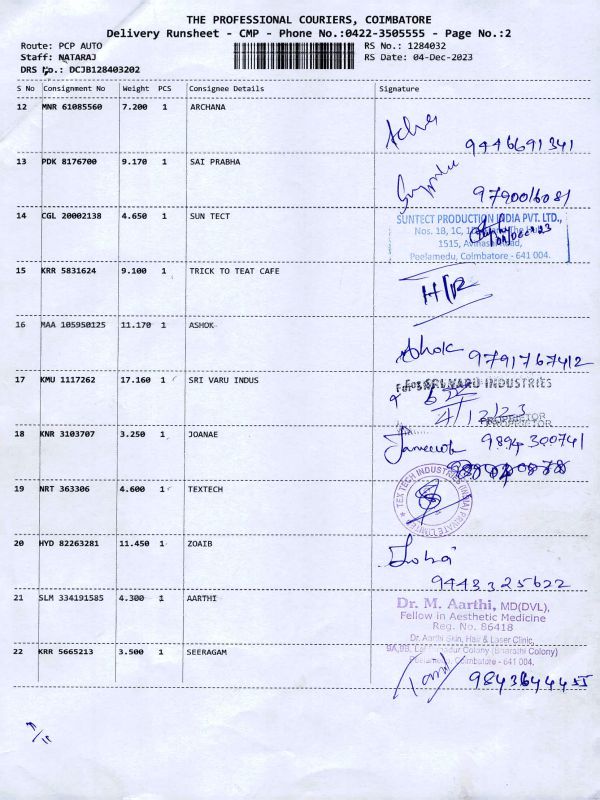 THE PROFESSIONAL COURIERS, COIMBATORE
Delivery Runsheet - CMP - Phone No.:0422-3505555 - Page No.:2
Route: PCP AUTO RS No.: 1284032
Staff: NATARAJ RS Date: 04-Dec-2023
DRS No.: DCJB128403202
S No Consignment No Weight PCS Consignee Details Signature
12 MNR 61085560 7.200 1 ARCHANA
9446691341
13 PDK 8176700 9.170 1 SAI PRABHA
9790016081
14 CGL 20002138 4.650 1 SUN TECT
SUNTECT PRODUCTION INDIA PVT. LTD.,
Nos. 1B, 1C,
1515, Avinashi Road,
Peelamedu, Coimbatore - 641 004.
15 KRR 5831624 9.100 1 TRICK TO TEAT CAFE
H/R
16 MAA 105950125 11.170 1 ASHOK
Ashok 9791767412
17 KMU 1117262 17.160 1 SRI VARU INDUS
For SRI VARU INDUSTRIES
4/12/23
PROPRIETOR
18 KNR 3103707 3.250 1 JOANAE
9894300741
19 NRT 363306 4.600 1 TEXTECH
TEXTECH INDUSTRIES (INDIA) PRIVATE LIMITED
20 HYD 82263281 11.450 1 ZOAIB
9443325622
21 SLM 334191585 4.300 1 AARTHI
Dr. M. Aarthi, MD(DVL),
Fellow in Aesthetic Medicine
Reg. No. 86418
Dr. Aarthi Skin, Hair & Laser Clinic,
9A,9B, Bahadur Colony (Bharathi Colony)
Peelamedu, Coimbatore - 641 004.
22 KRR 5665213 3.500 1 SEERAGAM
9843644455